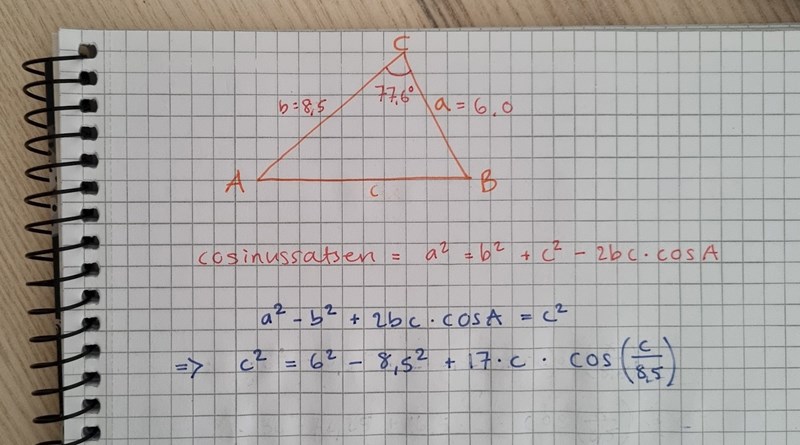 C
b = 8,5
77,6°
a = 6,0
A
B
c
cosinussatsen = a² = b² + c² - 2bc · cos A
a² - b² + 2bc · cos A = c²
=> c² = 6² - 8,5² + 17 · c · cos(c/8,5)